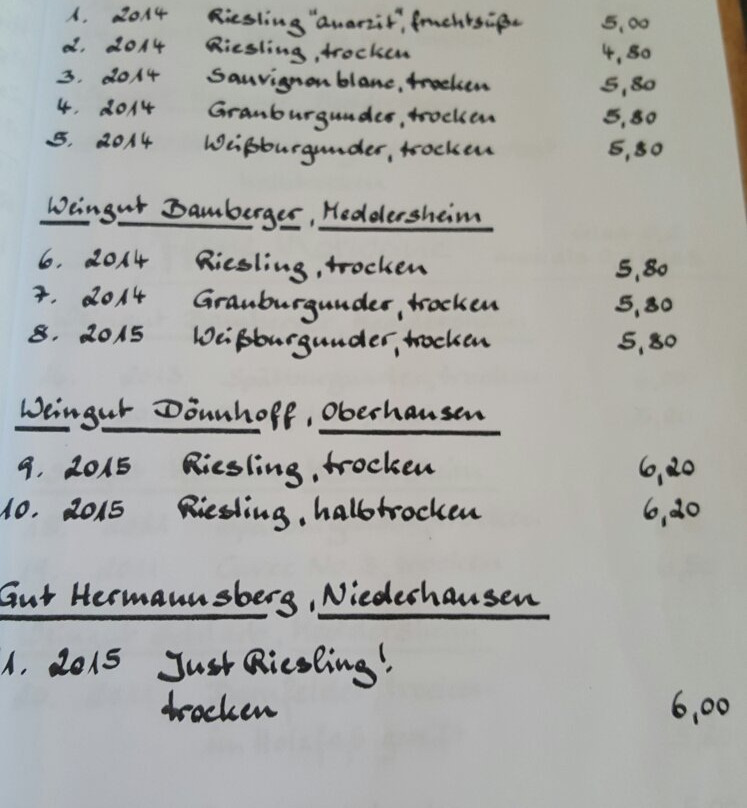 1. 2014 Riesling "Quarzit", fruchtsüße 5,00
2. 2014 Riesling, trocken 4,80
3. 2014 Sauvignon blanc, trocken 5,80
4. 2014 Grauburgunder, trocken 5,80
5. 2014 Weißburgunder, trocken 5,80
Weingut Bamberger, Meddersheim
6. 2014 Riesling, trocken 5,80
7. 2014 Grauburgunder, trocken 5,80
8. 2015 Weißburgunder, trocken 5,80
Weingut Dönnhoff, Oberhausen
9. 2015 Riesling, trocken 6,20
10. 2015 Riesling, halbtrocken 6,20
Gut Hermannsberg, Niederhausen
1. 2015 Just Riesling!
trocken 6,00